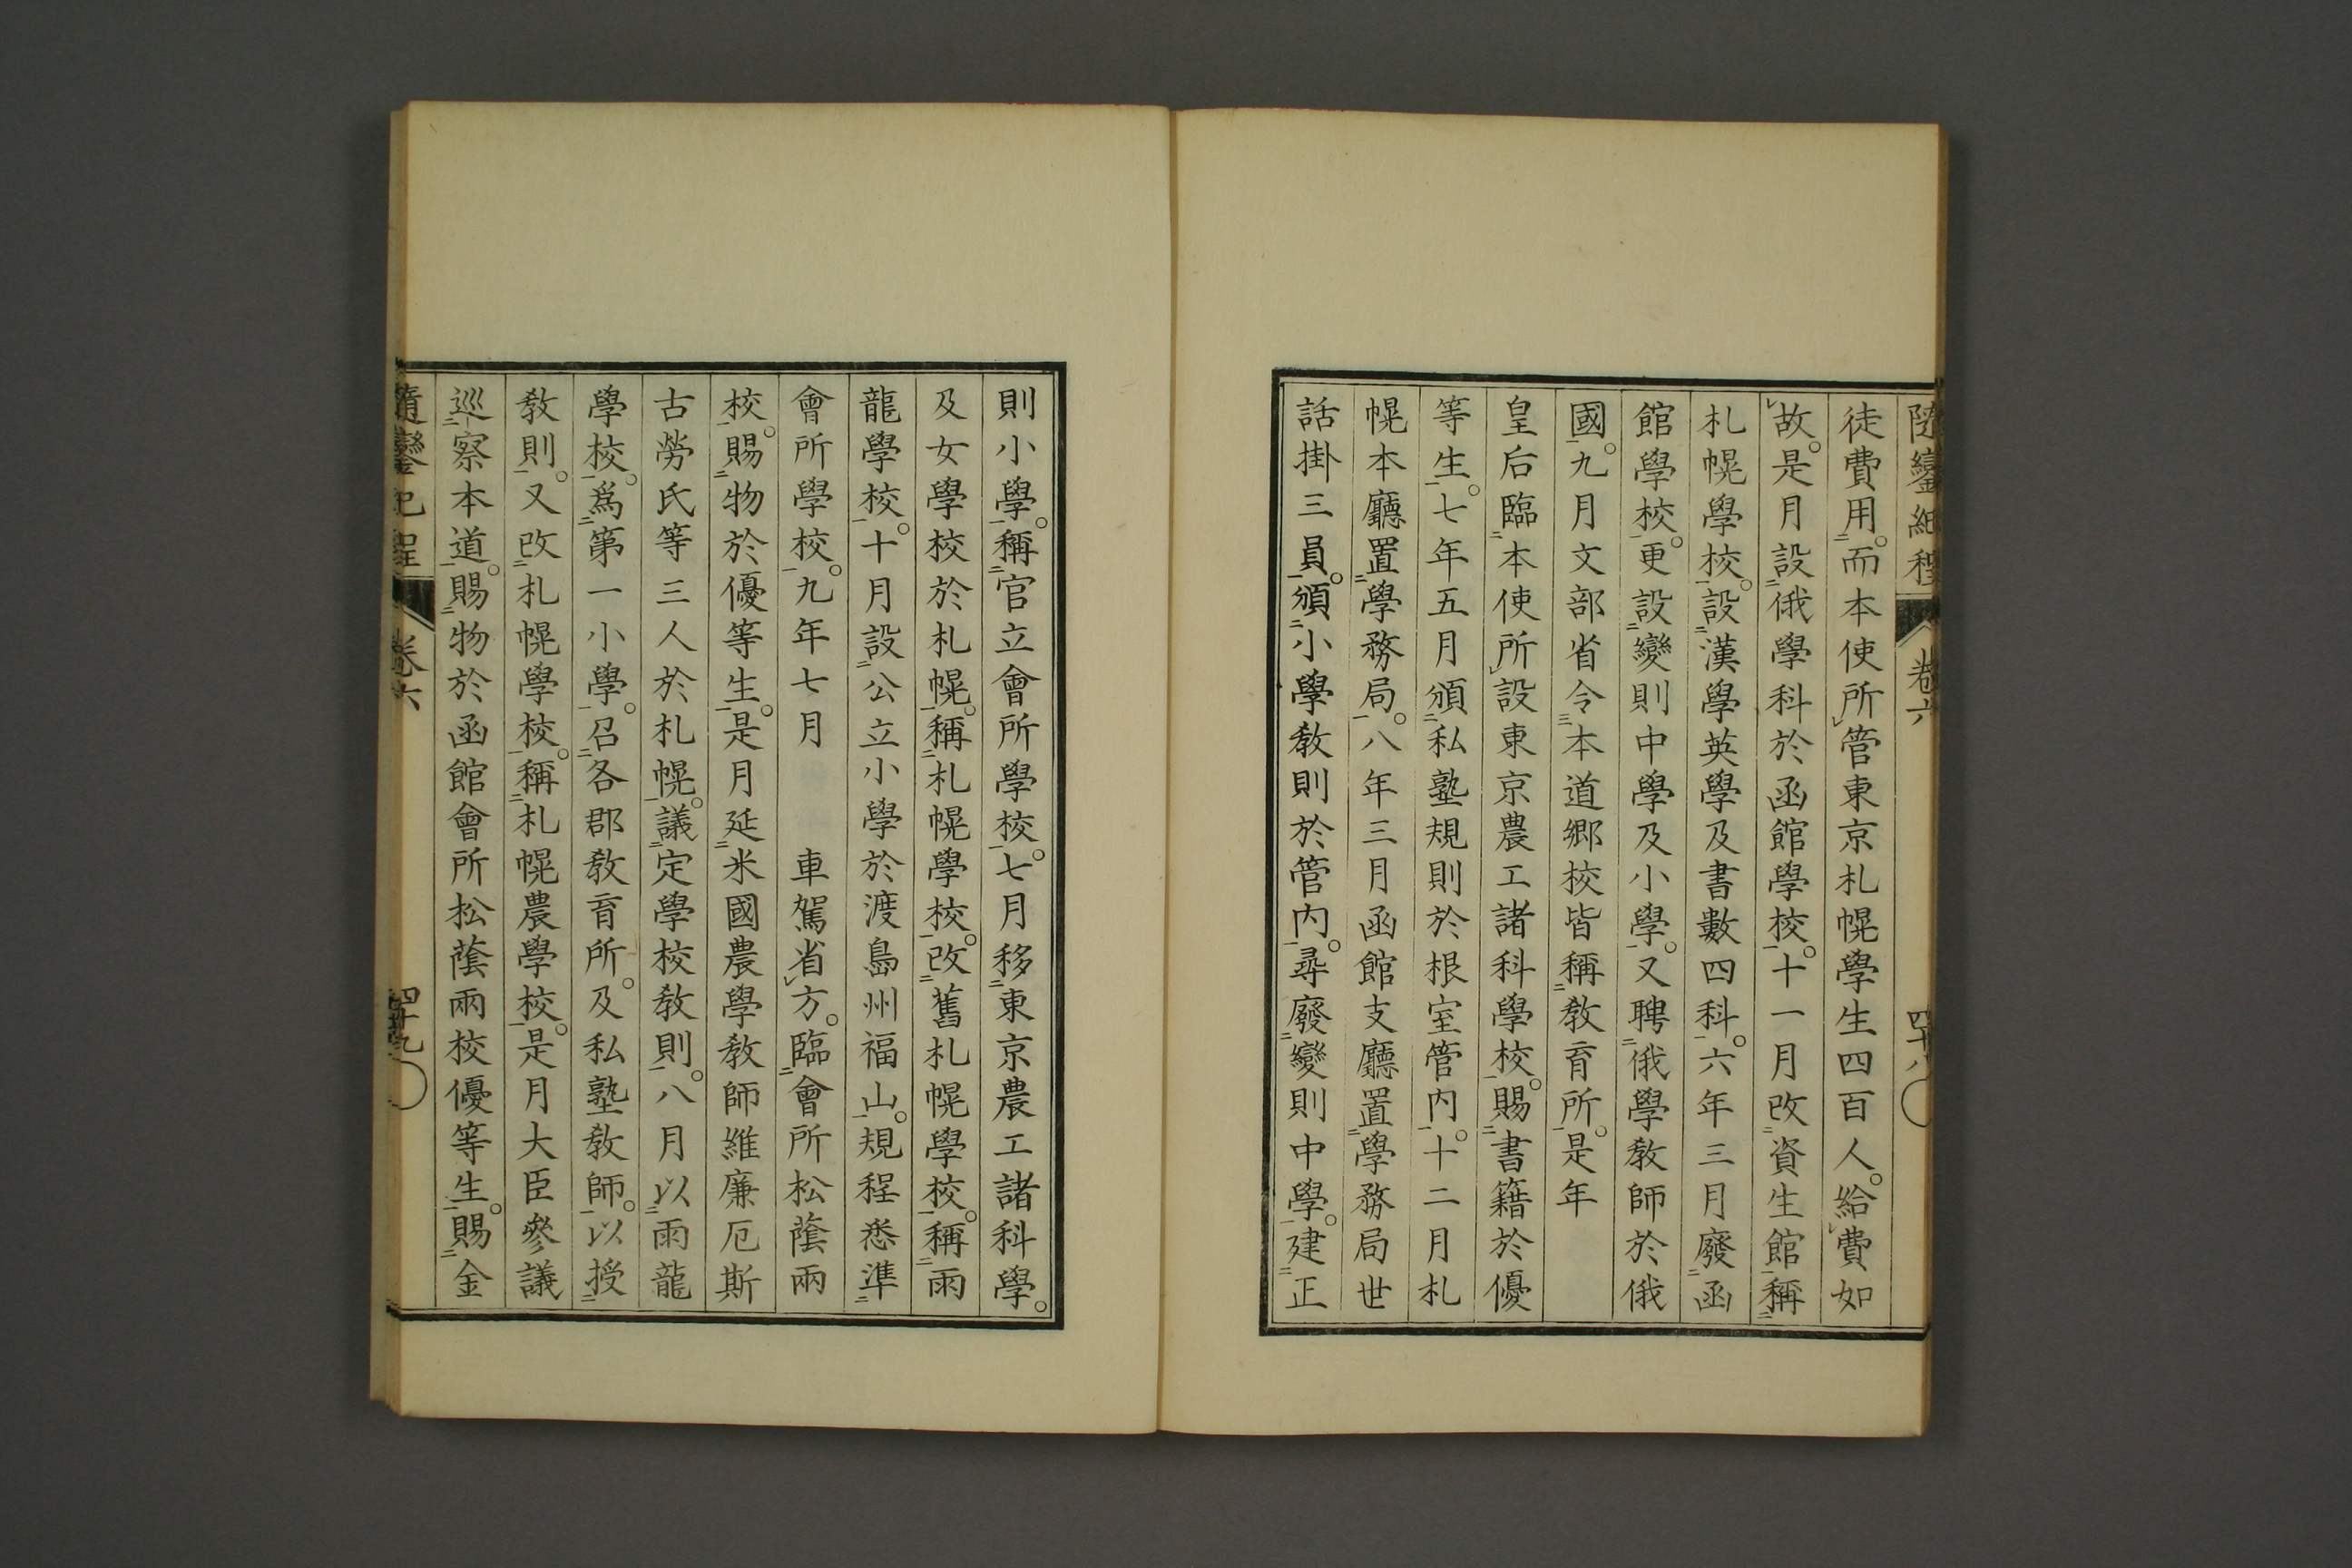 隨鑾紀程 卷六 四十八
徒費用。而本使所管東京札幌學生四百人。給費如
故。是月設俄學科於函館學校。十一月改資生館稱
札幌學校。設漢學英學及書數四科。六年三月廢函
館學校。更設變則中學及小學。又聘俄學敎師於俄
國。九月文部省令本道鄉校皆稱敎育所。是年
皇后臨本使所設東京農工諸科學校。賜書籍於優
等生。七年五月頒私塾規則於根室管內。十二月札
幌本廳置學務局。八年三月函館支廳置學務局世
話掛三員。頒小學敎則於管內。尋廢變則中學。建正
則小學。稱官立會所學校。七月移東京農工諸科學。
及女學校於札幌。稱札幌學校。改舊札幌學校。稱雨
龍學校。十月設公立小學於渡島州福山。規程悉準
會所學校。九年七月 車駕省方。臨會所松蔭兩
校。賜物於優等生。是月延米國農學敎師維廉厄斯
古勞氏等三人於札幌。議定學校敎則。八月以雨龍
學校。爲第一小學。召各郡敎育所。及私塾敎師。以授
敎則。又改札幌學校。稱札幌農學校。是月大臣參議
巡察本道。賜物於函館會所松蔭兩校優等生。賜金
隨鑾紀程 卷六 四十九